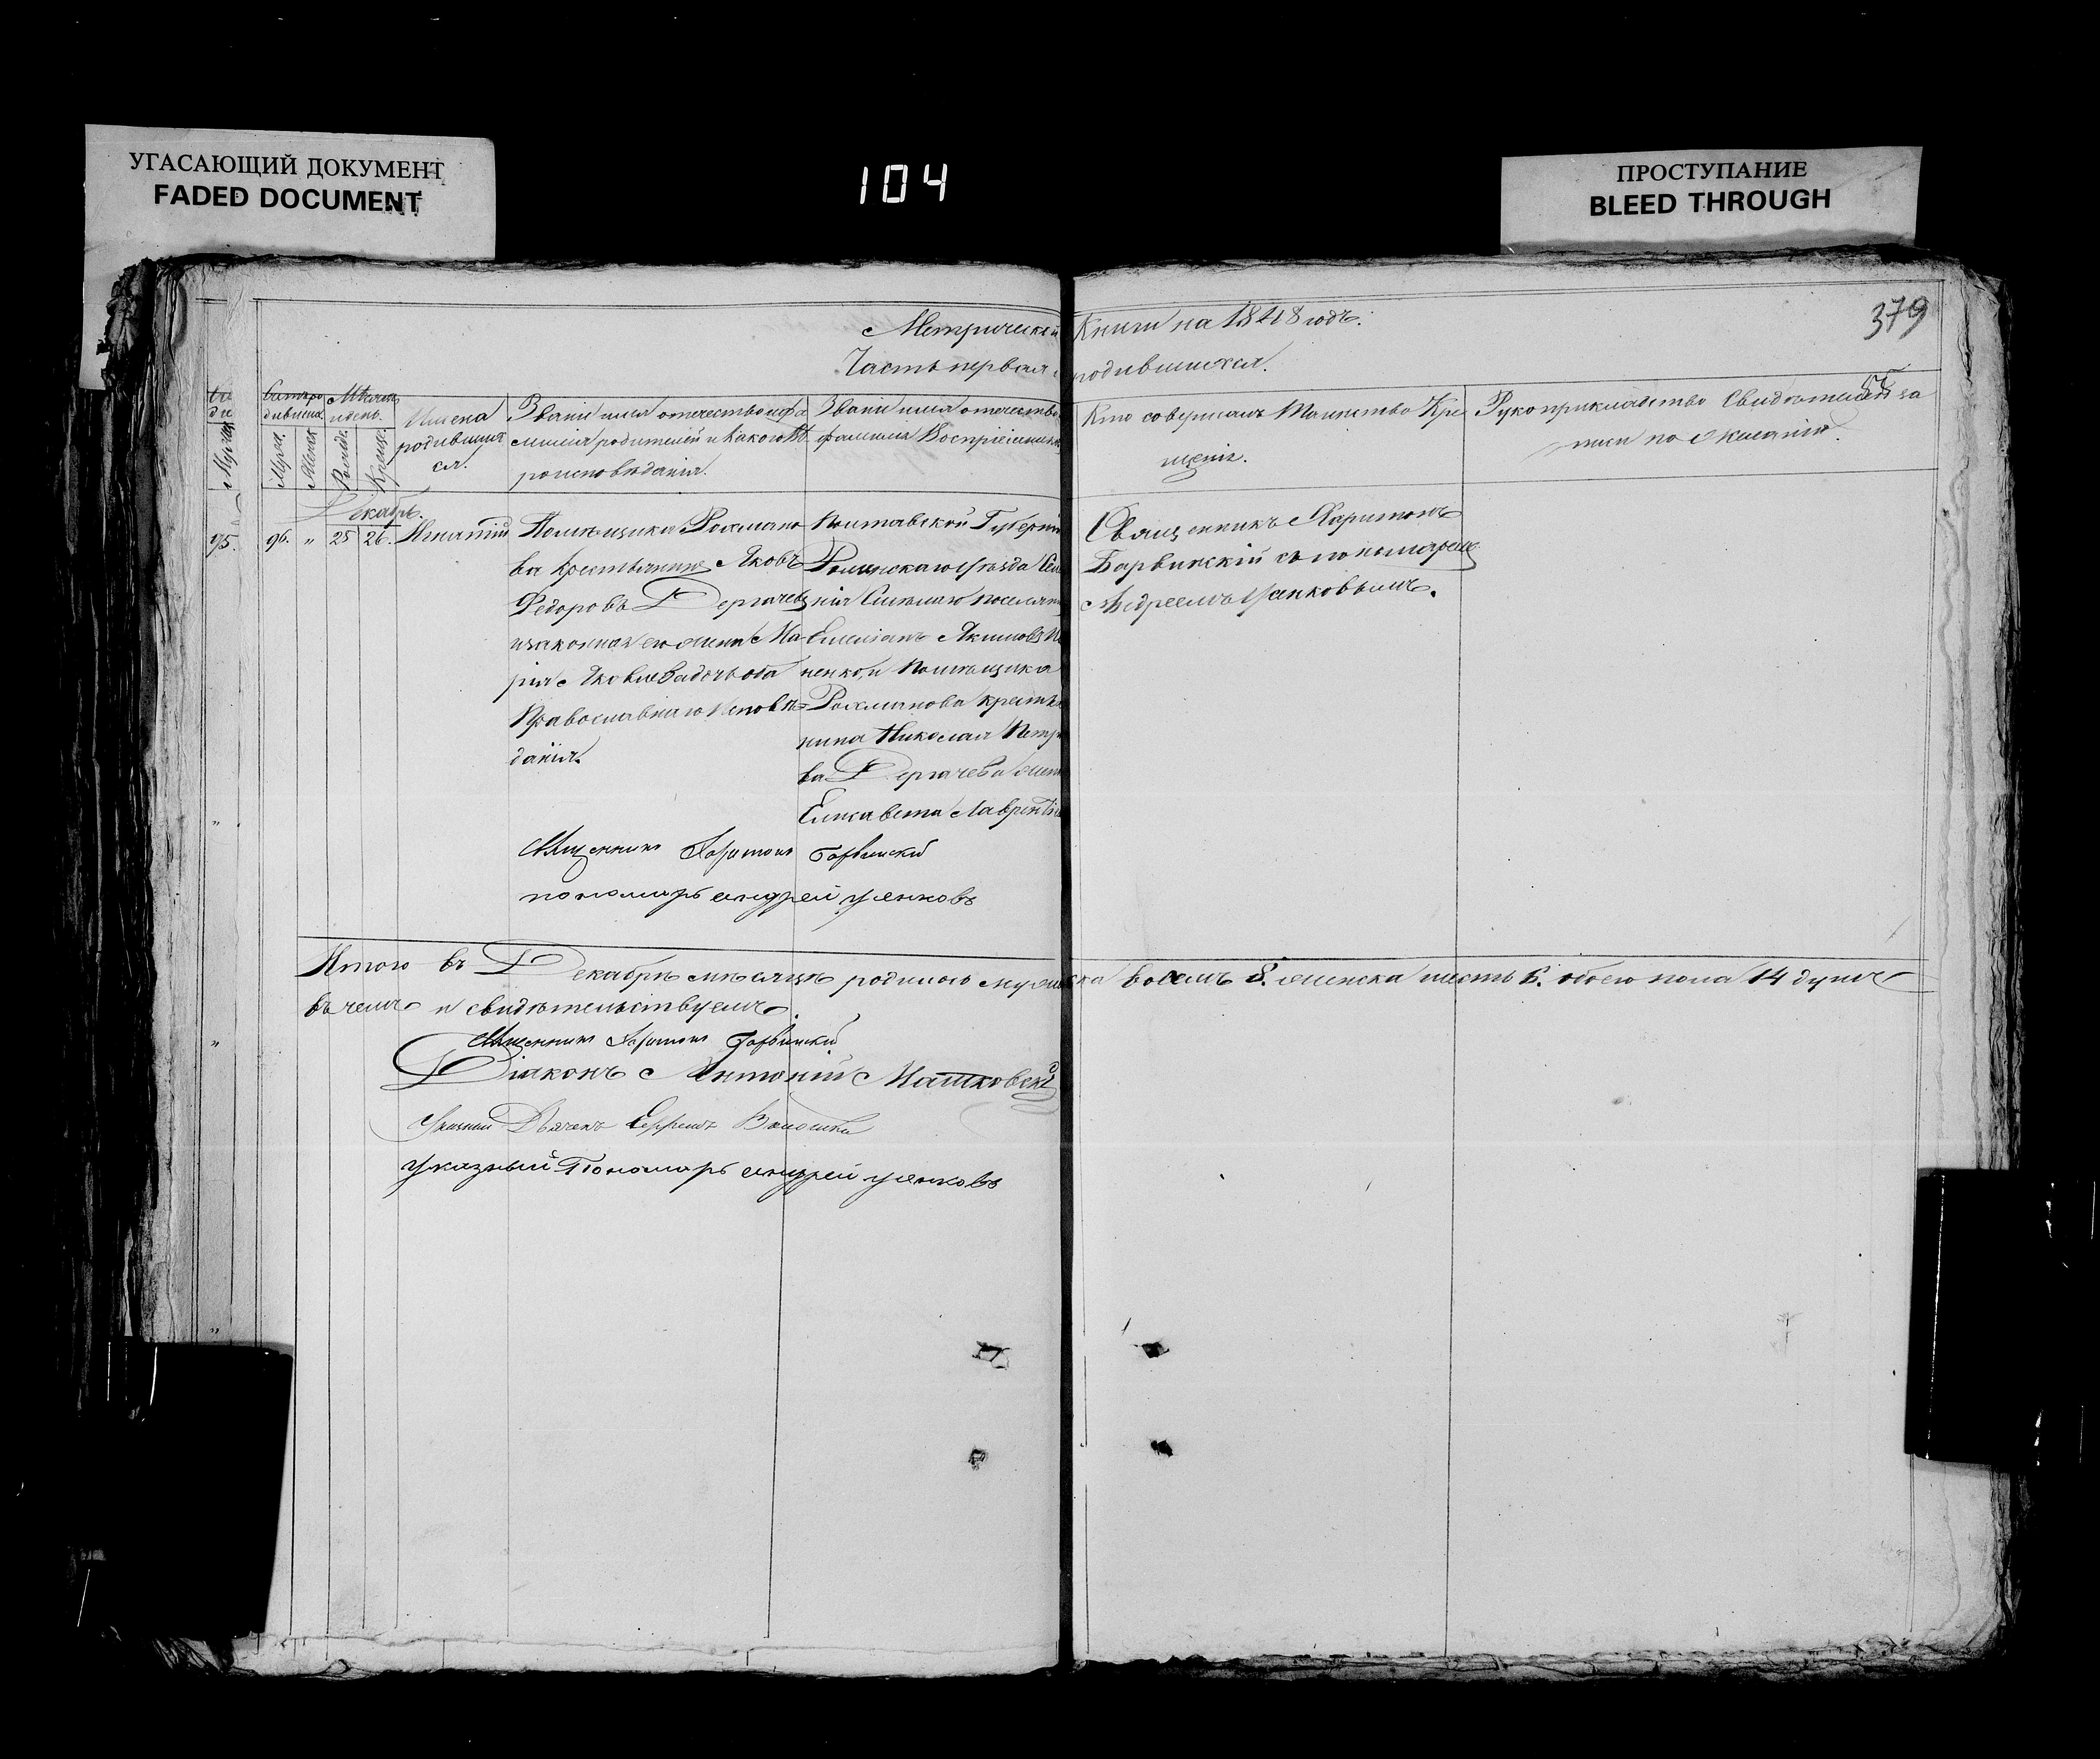 УГАСАЮЩИЙ ДОКУМЕНТ
FADED DOCUMENT
104
ПРОСТУПАНИЕ
BLEED THROUGH
379
Метрической Книги на 1848 годъ.
Часть первая о родившихся.
Мужеска
Мужеск.
Женск.
Рожде.
Креще.
Имена
родивших
ся.
Званіе имя отчество и фа
милія родителей и какого Вѣ
роисповѣданія.
Званіе имя отечество
фамилія Воспріемник
Кто совершалъ Таинство Кре
щенія.
Рукоприкладство Свидѣтелей за
писи по желанію.
Декабрь.
96. „ 25 26. Игнатій
Помѣщика Рахмано
ва Крестьянинъ Яковъ
Федоровъ Дергачевъ
и законная его жена Ма
рія Яковлева дочь оба
Православнаго Исповѣ
данія.
Полтавской Губерніи
Роменскаго Уѣзда
Емеліанъ Якимовъ
ненко, и Помѣщика
Рахманова крестья
нина Николая Петро
ва Дергачева жена
Елисавета Лаврентіе
Священникъ Харитонъ
Барвинскій съ пономаремъ
Андреемъ Уенковымъ.
Священникъ Харитонъ Барвинскій
пономарь андрей уенковъ
Итого въ Декабрѣ мѣсяцѣ родилось мужеска восемь 8. женска шесть 6. обоего пола 14 душъ
въ чемъ и свидѣтельствуемъ.
Священникъ Харитонъ Барвинскій
Діаконъ Антоній Матковскій
Указный Дьячекъ Ефремъ
Указный Пономарь андрей уенковъ